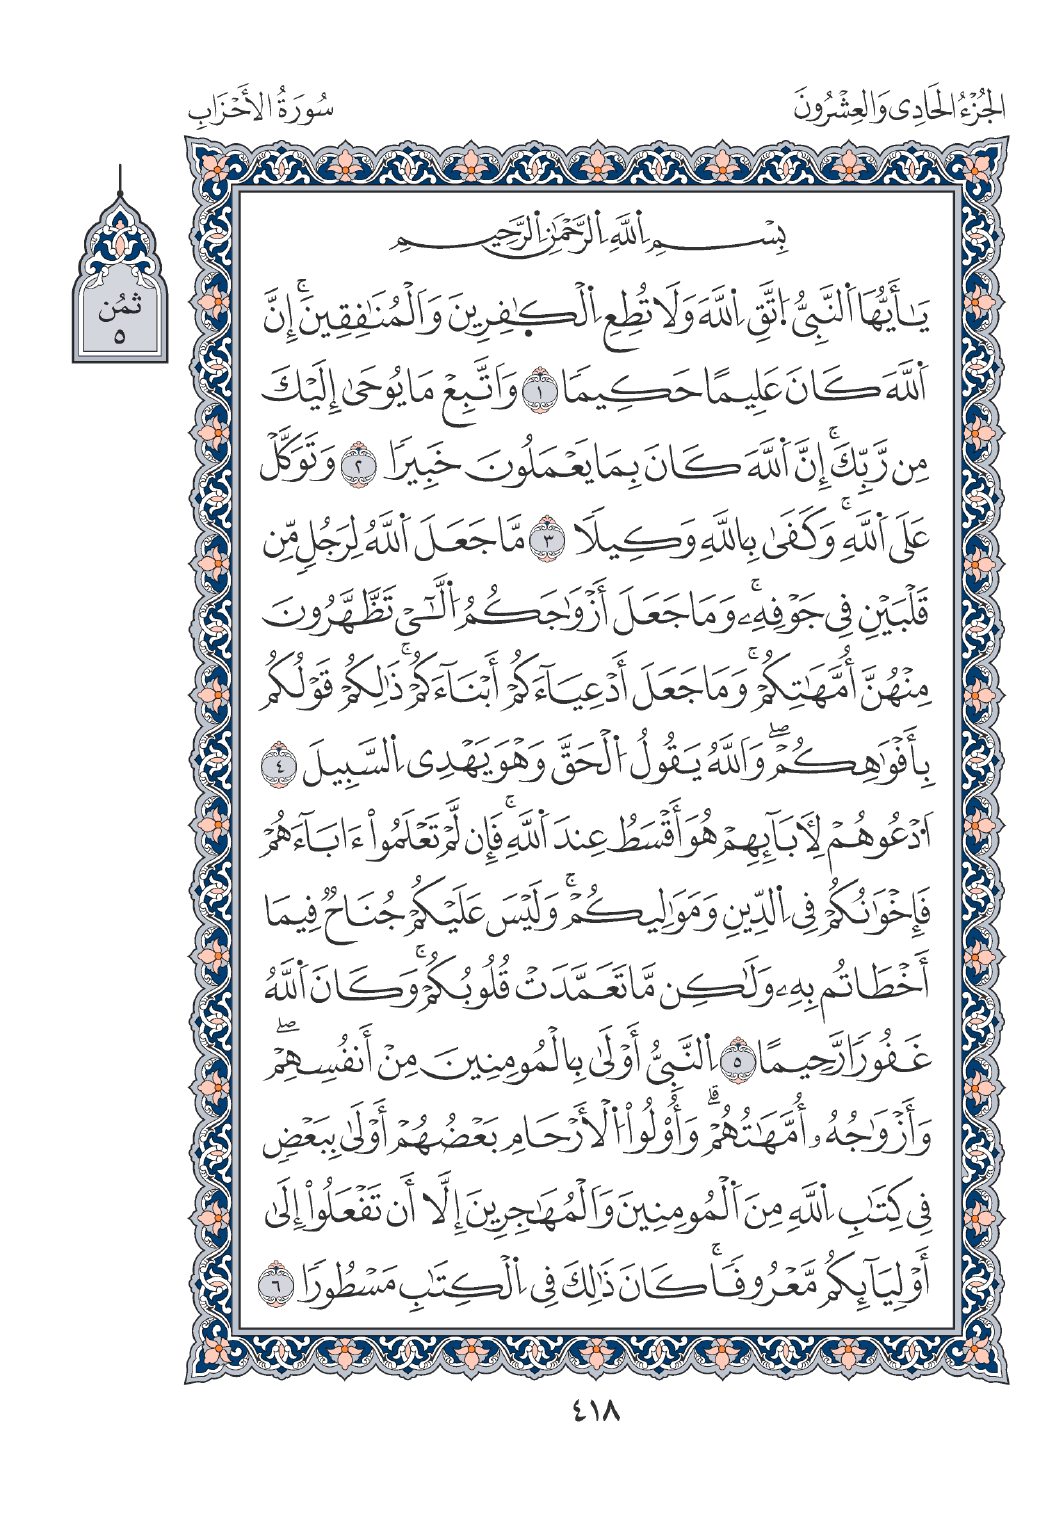 الجُزْءُ الحَادِى وَالعِشْرُونَ
سُورَةُ الأَحْزَابِ
ثمُن
٥
بِسْمِ اِ۬للَّهِ اِ۬لرَّحْمَٰنِ اِ۬لرَّحِيمِ
يَٰٓأَيُّهَا اَ۬لنَّبِيُّ اُ۪تَّقِ اِ۬للَّهَ وَلَا تُطِعِ اِ۬لْكٰ۪فِرِينَ وَالْمُنَٰفِقِينَۚ إِنَّ
اَ۬للَّهَ كَانَ عَلِيمًا حَكِيمٗا ١ وَاتَّبِعْ مَا يُوحَىٰ إِلَيْكَ
مِن رَّبِّكَۚ إِنَّ اَ۬للَّهَ كَانَ بِمَا يَعْمَلُونَ خَبِيرٗا ٢ وَتَوَكَّلْ
عَلَى اَ۬للَّهِۚ وَكَفَىٰ بِاللَّهِ وَكِيلٗا ٣ مَّا جَعَلَ اَ۬للَّهُ لِرَجُلٖ مِّن
قَلْبَيْنِ فِي جَوْفِهِۦۚ وَمَا جَعَلَ أَزْوَٰجَكُمُ اُ۬لَّٰٓيْ تَظَّهَّرُونَ
مِنْهُنَّ أُمَّهَٰتِكُمْۚ وَمَا جَعَلَ أَدْعِيَآءَكُمْ أَبْنَآءَكُمْۚ ذَٰلِكُمْ قَوْلُكُم
بِأَفْوَٰهِكُمْۖ وَاللَّهُ يَقُولُ اُ۬لْحَقَّ وَهْوَ يَهْدِى اِ۬لسَّبِيلَ ٤
اَ۟دْعُوهُمْ لِأٓبَآئِهِمْ هُوَ أَقْسَطُ عِندَ اَ۬للَّهِۚ فَإِن لَّمْ تَعْلَمُواْ ءَابَآءَهُمْ
فَإِخْوَٰنُكُمْ فِى اِ۬لدِّينِ وَمَوَٰلِيكُمْۚ وَلَيْسَ عَلَيْكُمْ جُنَاحٞ فِيمَا
أَخْطَاتُم بِهِۦ وَلَٰكِن مَّا تَعَمَّدَتْ قُلُوبُكُمْۚ وَكَانَ اَ۬للَّهُ
غَفُورٗا رَّحِيمًا ٥ اِ۬لنَّبِيُّ أَوْلَىٰ بِالْمُومِنِينَ مِنْ أَنفُسِهِمْۖ
وَأَزْوَٰجُهُۥ أُمَّهَٰتُهُمْۗ وَأُوْلُواْ اُ۬لْأَرْحَامِ بَعْضُهُمْ أَوْلَىٰ بِبَعْضٖ
فِى كِتَٰبِ اِ۬للَّهِ مِنَ اَ۬لْمُومِنِينَ وَالْمُهَٰجِرِينَ إِلَّا أَن تَفْعَلُواْ إِلَىٰ
أَوْلِيَآئِكُم مَّعْرُوفٗاۚ كَانَ ذَٰلِكَ فِى اِ۬لْكِتَٰبِ مَسْطُورٗا ٦
٤١٨